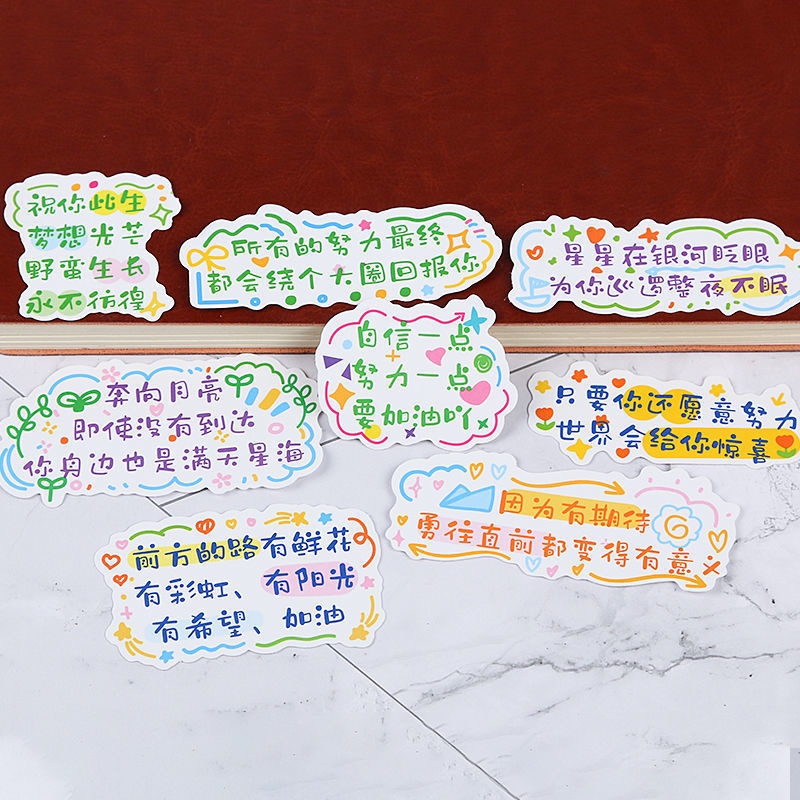 祝你此生
梦想光芒
野蛮生长
永不彷徨
所有的努力最终
都会绕个大圈回报你
星星在银河眨眼
为你巡逻整夜不眠
自信一点
努力一点
要加油吖
奔向月亮
即使没有到达
你身边也是满天星海
只要你还愿意努力
世界会给你惊喜
因为有期待
勇往直前都变得有意义
前方的路有鲜花
有彩虹、有阳光
有希望、加油